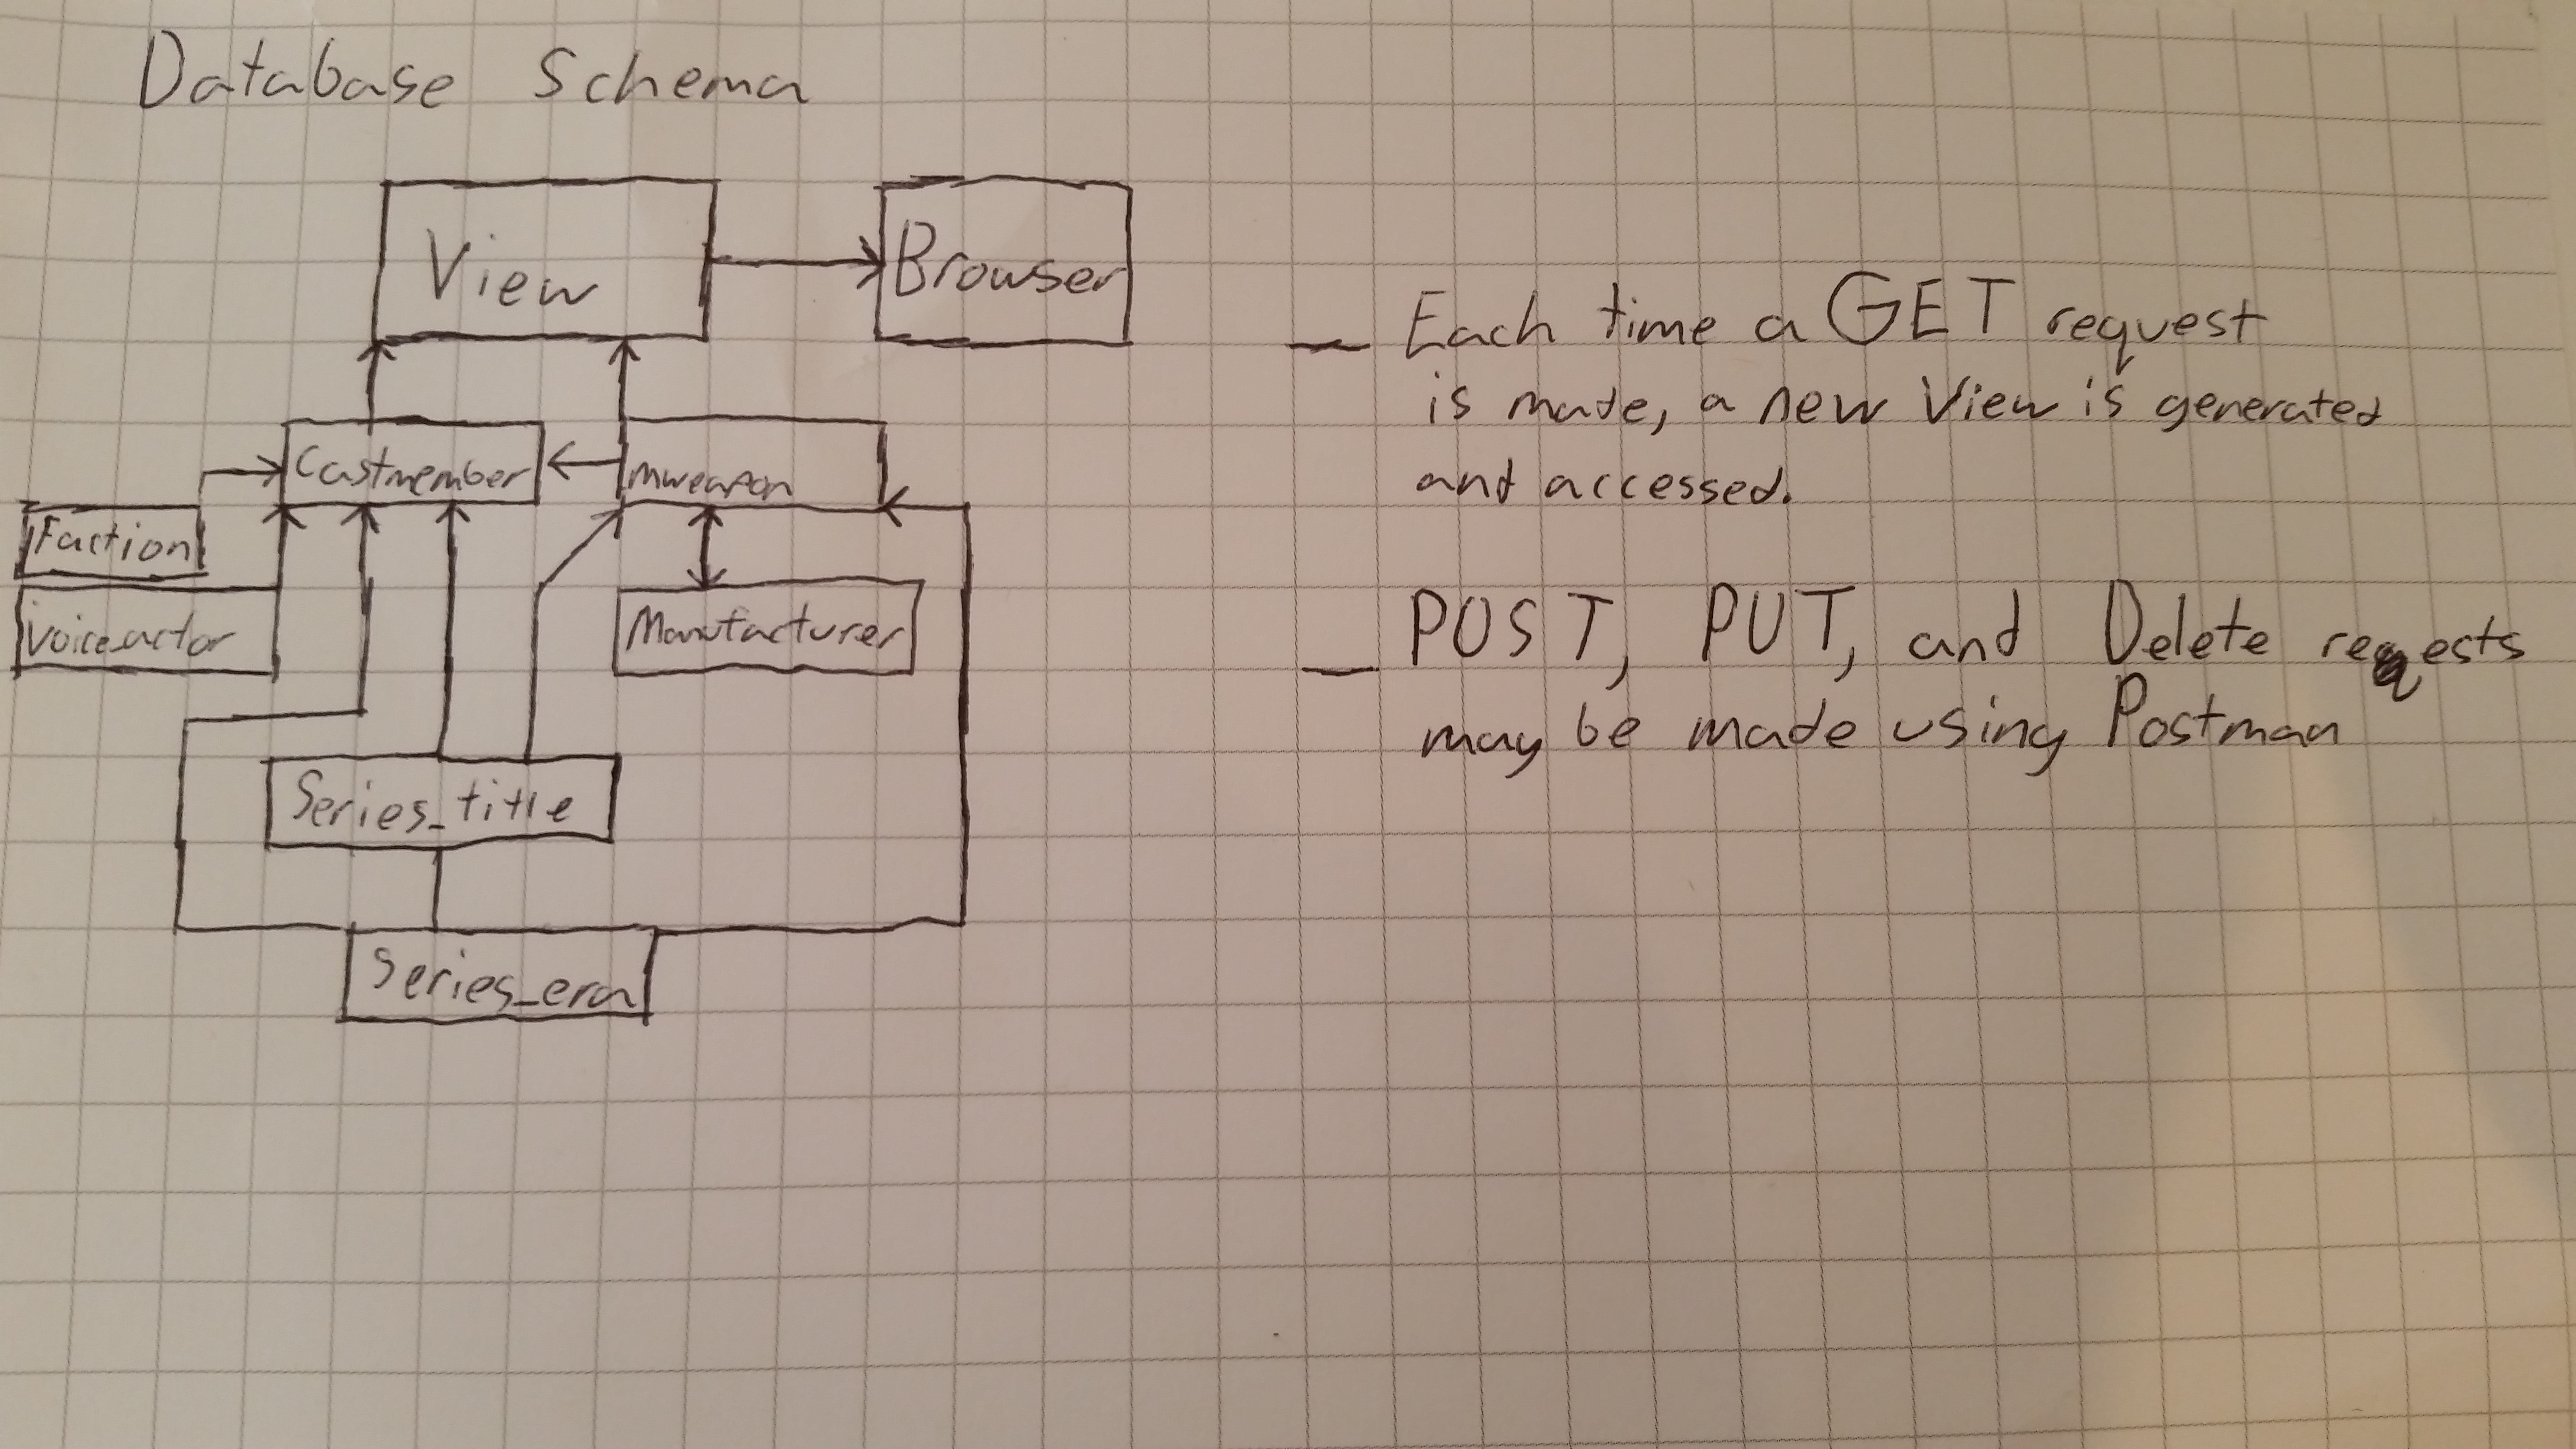 Database Schema
View
Browser
Castmember
mweapon
Faction
Voice_actor
Manufacturer
Series_title
Series_era
— Each time a GET request
is made, a new View is generated
and accessed.
— POST, PUT, and Delete reqests
may be made using Postman